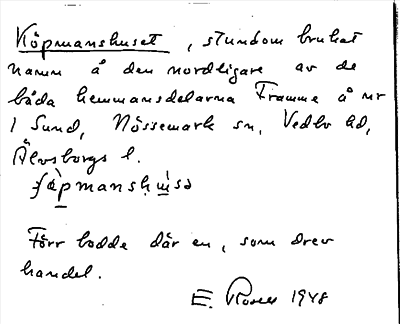 Köpmanshuset, stundom brukat
namn å den nordligare av de
båda hemmansdelarna Framme å nr
1 Sund, Nössemark sn, Vedbo hd,
Älvsborgs l.
Förr bodde där en, som drev
handel.
E. 1948